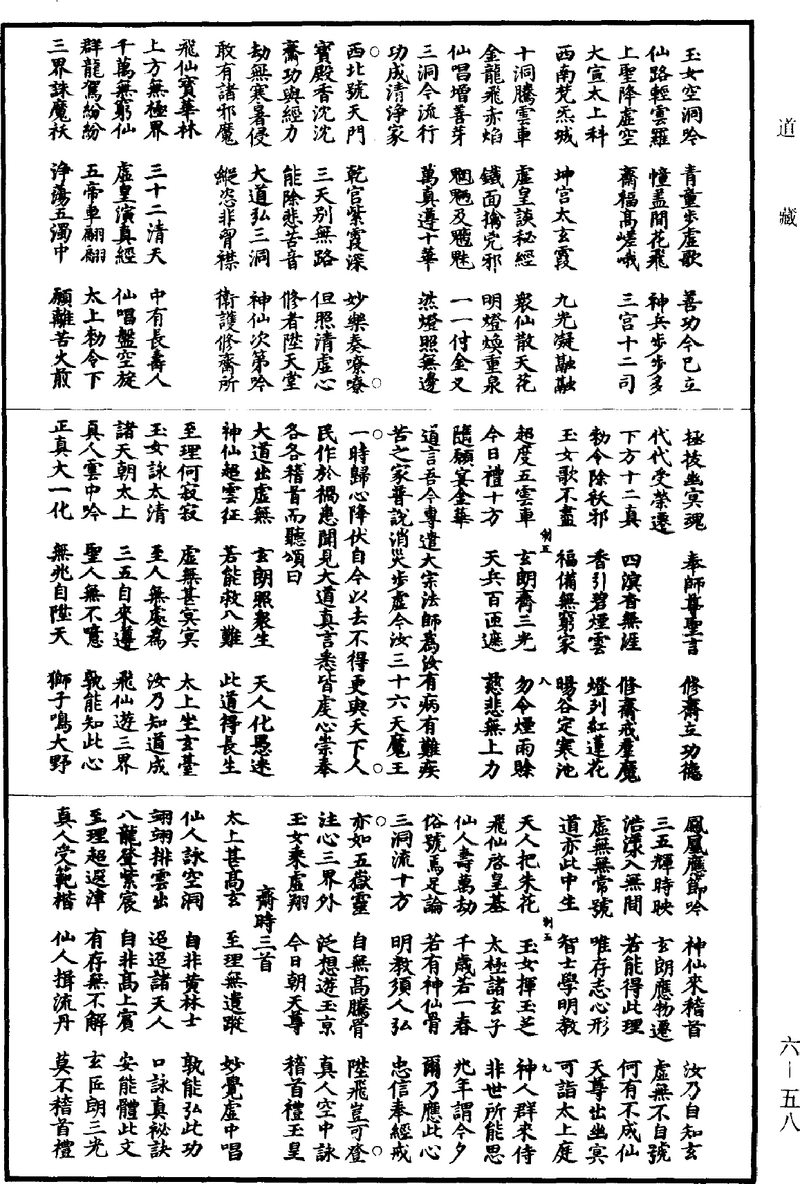 道藏
六－五八
玉女空洞吟　青童步虛歌　善功今已立
仙路輕雲羅　幢蓋間花飛　神兵步步多
上聖降虛空　齋福高嵯峨　三宮十二司
大宣太上科
西南梵炁城　坤宮太玄霞　九光凝融融
十洞騰雲車　虛皇談秘經　衆仙散天花
金龍飛赤焰　鐵面擒兇邪　明燈煥重泉
仙唱增善芽　魍魎及魑魅　一一付金叉
三洞今流行　萬真遵十華　然燈照無邊
功成清淨家
西北號天門　乾宮紫霞深　妙樂奏嘹嘹
寶殿香沈沈　三天別無路　但照清虛心
齋功與經力　能除悲苦音　修者陞天堂
劫無寒暑侵　大道弘三洞　神仙次第吟
敢有諸邪魔　縱恣非胷襟　衛護修齋所
飛仙寶華林
上方無極界　三十二清天　中有長壽人
千萬無窮仙　虛皇演真經　仙唱盤空旋
群龍駕紛紛　五帝車翩翩　太上勑令下
三界誅魔袄　淨蕩五濁中　願離苦火煎
拯拔幽冥魂　奉師尊聖言　修齋立功德
代代受榮遷
下方十二真　四演音無涯　修齋戒羣魔
勑令除袄邪　香引碧煙雲　燈列紅蓮花
玉女歌不盡　福備無窮家　暘谷定寒池
超度五雲車　玄朗齊三光　勿令煙雨賒
今日禮十方　天兵百匝遮　慈悲無上力
隨願宴金華
道言吾今專遣大宗法師爲汝有病有難疾
苦之家普說消災步虛令汝三十六天魔王
一時歸心降伏自今以去不得更與天下人
民作於禍患聞見大道真言悉皆虔心崇奉
各各稽首而聽頌曰
大道出虛無　玄朗照衆生　天人化愚迷
神仙超雲征　若能救八難　此道得長生
至理何寂寂　虛無甚冥冥　太上坐玄臺
玉女詠太清　至人無處爲　汝乃知道成
諸天朝太上　三五自來遵　飛仙遊三界
真人雲中吟　聖人無不憶　孰能知此心
正真大一化　無兆自陞天　獅子鳴大野
鳳凰應節吟　神仙來稽首　汝乃自知玄
三五輝時映　玄朗應物遷　虛無不自號
浩漾入無間　若能得此理　何有不成仙
虛無無常號　唯存志心形　天尊出幽冥
道亦此中生　智士學明教　可詣太上庭
天人把朱花　玉女揮玉芝　神人群來侍
飛仙啓皇基　太極諸玄子　非世所能思
仙人壽萬劫　千歲若一春　兆年謂今夕
俗號馬足論　若有神仙骨　爾乃應此心
三洞流十方　明教須人弘　忠信奉經戒
亦如五嶽靈　自無高騰骨　陞飛豈可登
注心三界外　泛想遊玉京　真人空中詠
玉女乘虛翔　今日朝天尊　稽首禮玉皇
齋時三首
太上甚高玄　至理無遺蹤　妙覺虛中唱
仙人詠空洞　自非黄林士　孰能弘此功
翊翊排雲出　迢迢諸天人　口詠真祕訣
八龍登紫宸　自非高上賓　安能體此文
至理超遐津　有存無不解　玄匠朗三光
真人受範楷　仙人揖流丹　莫不稽首禮